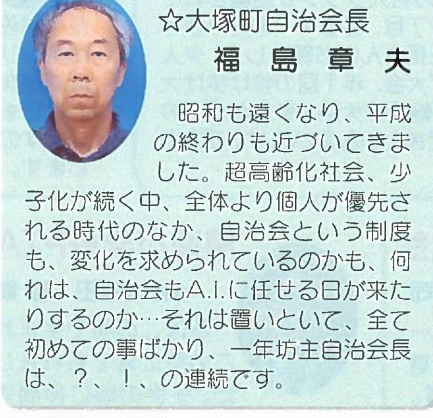 ☆大塚町自治会長
福島章夫
昭和も遠くなり、平成
の終わりも近づいてきま
した。超高齢化社会、少
子化が続く中、全体より個人が優先さ
れる時代のなか、自治会という制度
も、変化を求められているのかも、何
れは、自治会もA.I.に任せる日が来た
りするのか…それは置いといて、全て
初めての事ばかり、一年坊主自治会長
は、？、！、の連続です。